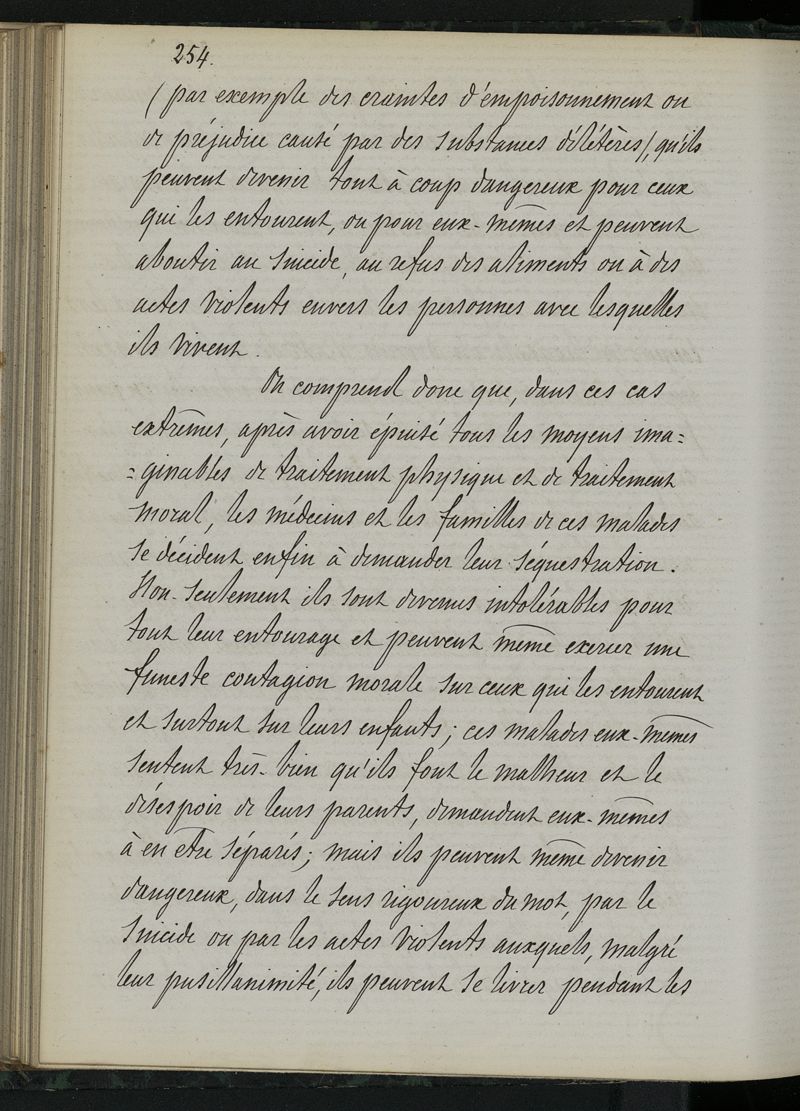 254.
(par exemple des craintes d'empoisonnement ou
de préjudice causé par des substances délétères), qu'ils
peuvent devenir tout à coup dangereux pour ceux
qui les entourent, ou pour eux-mêmes et peuvent
aboutir au suicide, au refus des aliments ou à des
actes violents envers les personnes avec lesquelles
ils vivent.
On comprend donc que, dans ces cas
extrêmes, après avoir épuisé tous les moyens ima=
=ginables de traitement physique et de traitement
moral, les médecins et les familles de ces malades
se décident enfin à demander leur séquestration.
Non-seulement ils sont devenus intolérables pour
tout leur entourage et peuvent même exercer une
funeste contagion morale sur ceux qui les entourent
et surtout sur leurs enfants; ces malades eux-mêmes
sentent très-bien qu'ils font le malheur et le
désespoir de leurs parents, demandent eux-mêmes
à en être séparés; mais ils peuvent même devenir
dangereux, dans le sens rigoureux du mot, par le
suicide ou par les actes violents auxquels, malgré
leur pusillanimité, ils peuvent se livrer pendant les